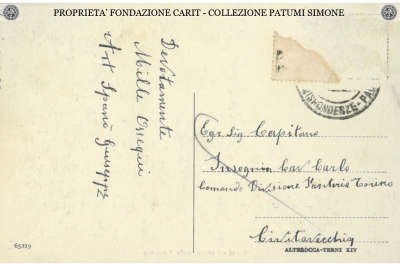 PROPRIETA' FONDAZIONE CARIT - COLLEZIONE PATUMI SIMONE
Devotamente
Mille Ossequi
Art Spanò Giuseppe
RISPONDENZE-PA
Egr Sig Capitano
Cav Carlo
Comando Divisione Fanteria Torino
Civitavecchia
65229
ALTEROCCA-TERNI XIV